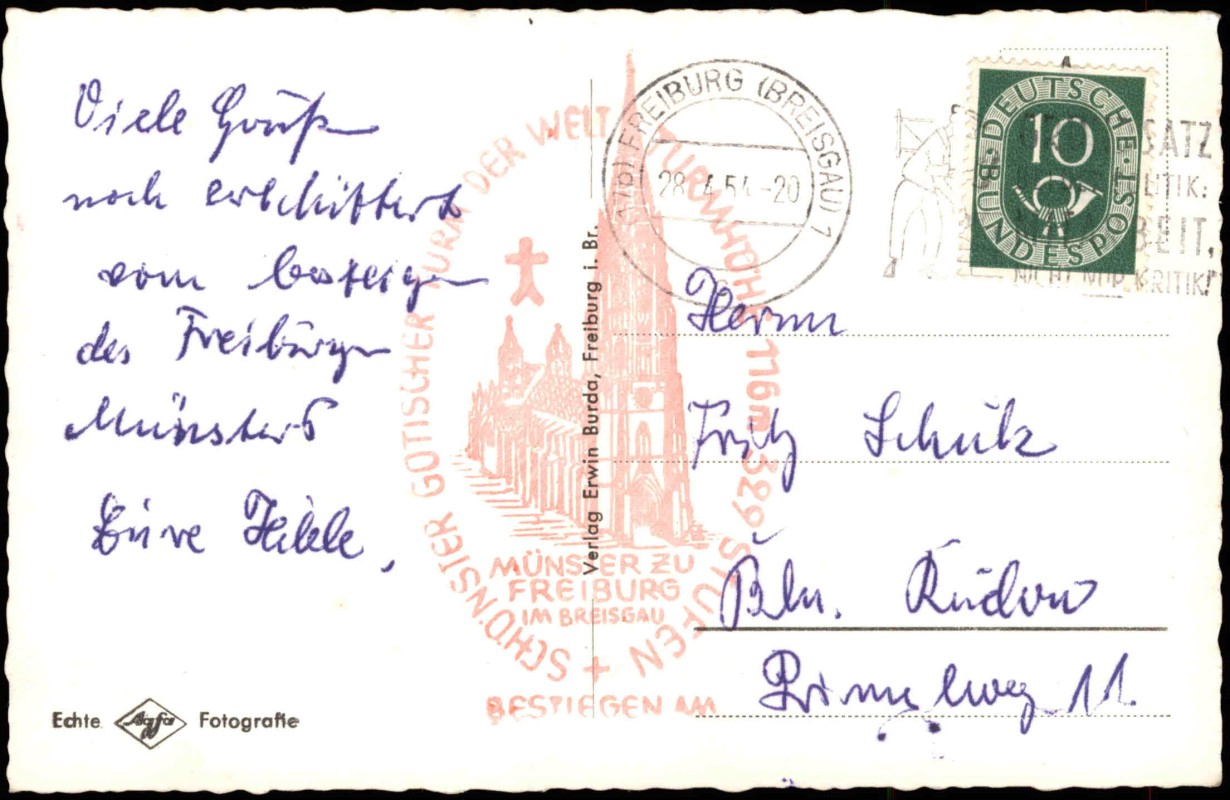 Viele Grüße
noch erschüttert
vom besteigen
des Freiburger
Münsters
Eure Hille,
Echte Agfa Fotografie
Verlag Erwin Burda, Freiburg i. Br.
SCHÖNSTER GOTISCHER TURM DER WELT
TURMHÖHE 116m 329 STUFEN +
MÜNSTER ZU
FREIBURG
IM BREISGAU
BESTIEGEN AM
FREIBURG (BREISGAU) 1
28.4.54.-20
DEUTSCHE BUNDESPOST
10
SATZ
NICHT NUR KRITIK!
Herrn
Fritz Schulz
Bln. Rudow
Primelweg 11.